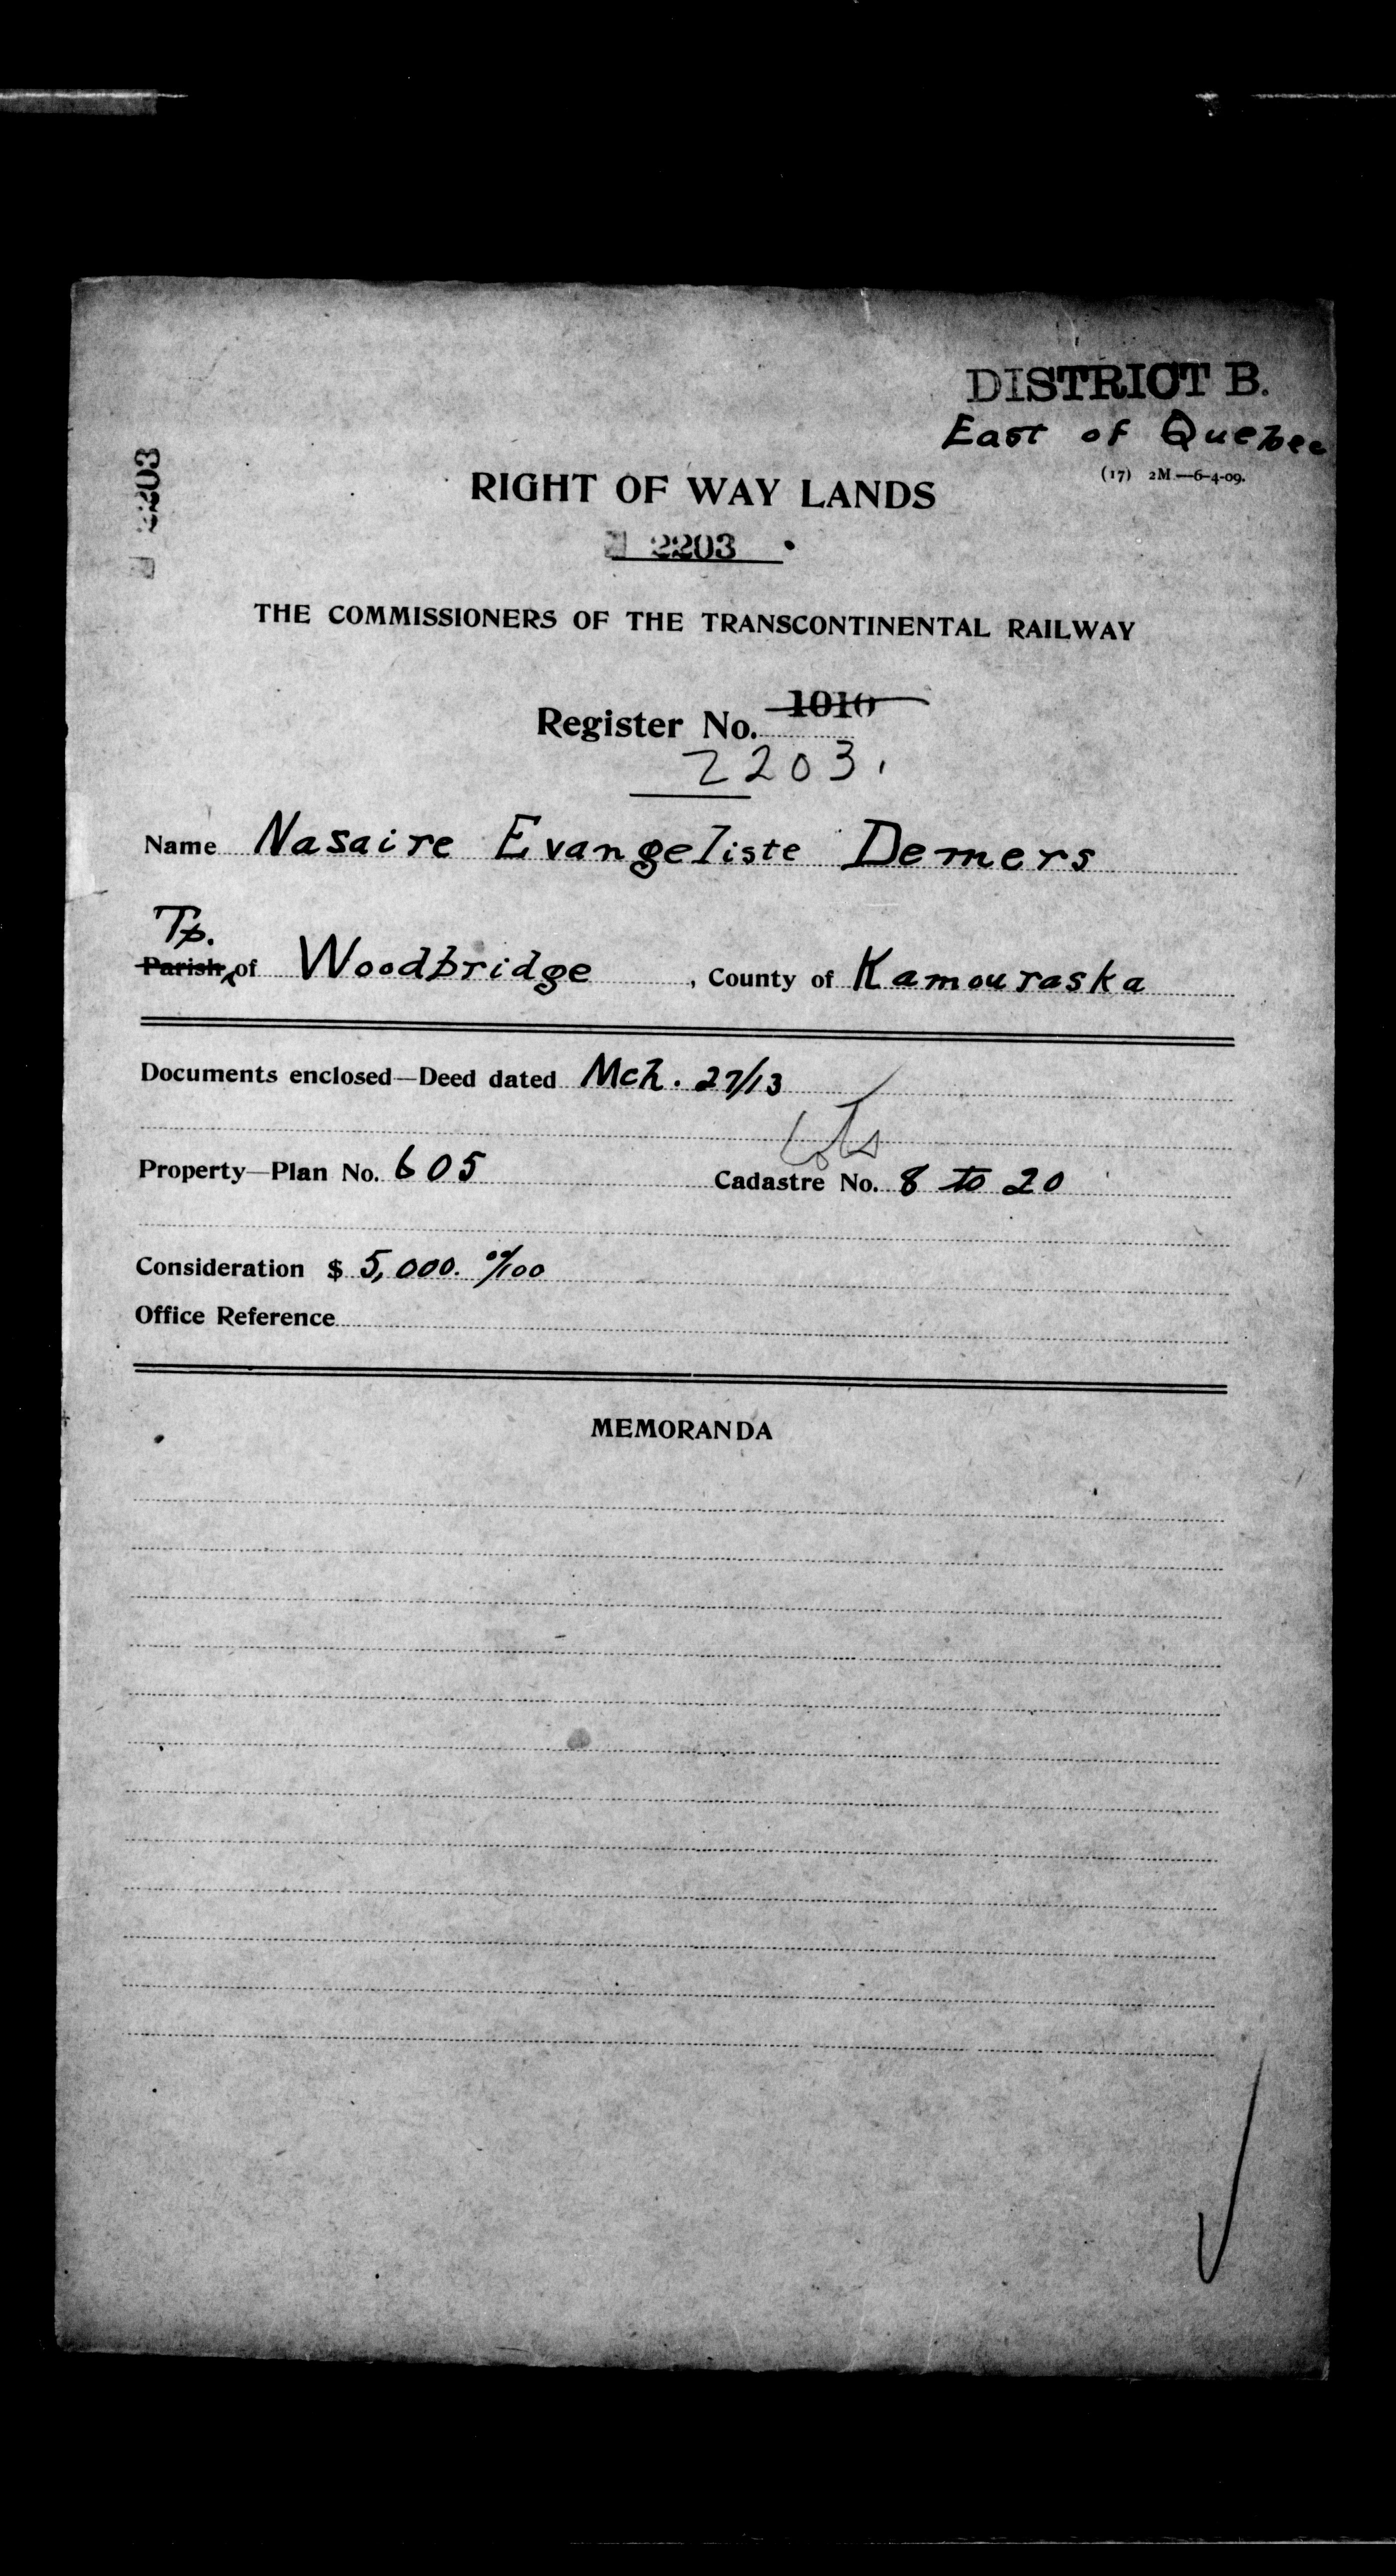 DISTRICT B.
East of Quebec
(17) 2M—6-4-09.
2203
RIGHT OF WAY LANDS
2203
THE COMMISSIONERS OF THE TRANSCONTINENTAL RAILWAY
Register No. 1010
2203.
Name Nasaire Evangeliste Demers
Tp.
Parish of Woodbridge, County of Kamouraska
Documents enclosed—Deed dated Mch. 27/13
Lots
Property—Plan No. 605 Cadastre No. 8 to 20
Consideration $ 5,000. 00/100
Office Reference
MEMORANDA